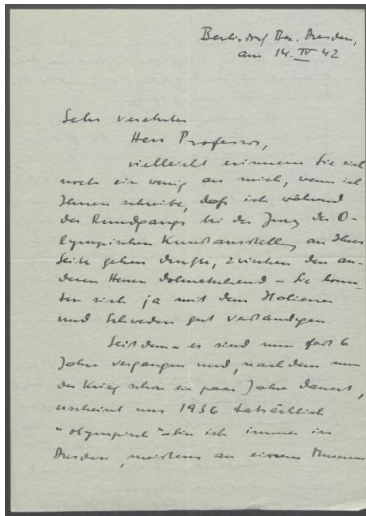 Bez. Dresden,
am 14. IV 42
Sehr verehrter
Herr Professor,
vielleicht erinnern Sie sich
noch ein wenig an mich, wenn ich
Ihnen schreibe, daß ich während
des Rundgangs bei der Jury der O-
lympischen Kunstausstellung an Ihrer
Seite gehen durfte, zwischen den an-
deren Herren dolmetschend – Sie konn-
ten sich ja mit dem Italiener
und Schweden gut verständigen.
Seitdem – es sind nun fast 6
Jahre vergangen und, nachdem nun
der Krieg schon ein paar Jahre dauert,
erscheint uns 1936 tatsächlich
"olympisch" – bin ich immer in
Dresden, meistens an einem Museum